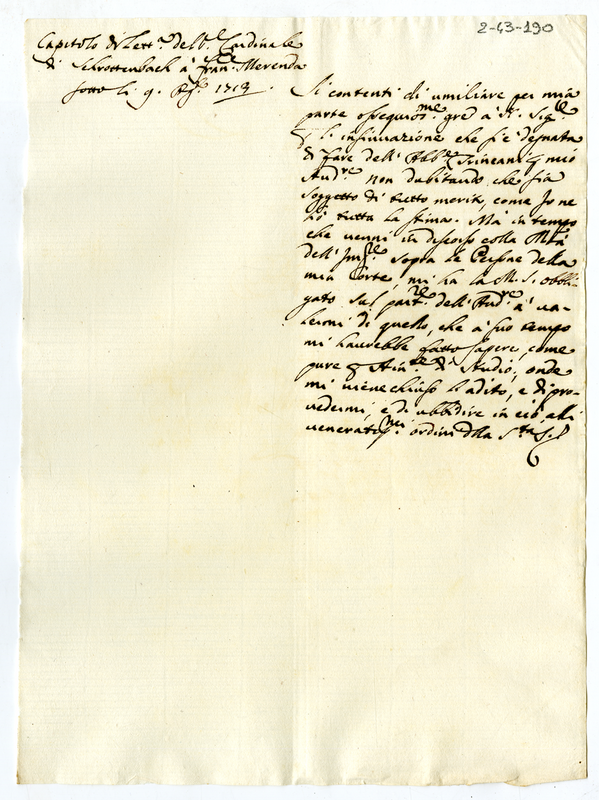 2-43-190
Capitolo di Lett.a del S.r Cardinale
di Schrottenbach à Fran.co Merenda
sotto li 9. 1713.
Si contenti di umiliare per mia
parte ossequios.me gre à S. Sig.
l'insinuazione che s'è degnata
di fare dell' Abb.e mio
Aud.re non dubitando che sia
soggetto di tutto merito, come Io ne
hò tutta la stima. Mà in tempo
che venni in discorso colla Mtà
dell' Imp.re sopra le Persone della
mia Corte, mi ha la M. S. obbli-
gato sul part.re dell' Aud.re à va-
lermi di quello, che à suo tempo
mi haverebbe fatto sapere, come
pure di Studio; onde
mi viene chiuso l'adito, e di pro-
vedermi, e di ubbidire in ciò, alli
veneratis.mi ordini della S.tà S.